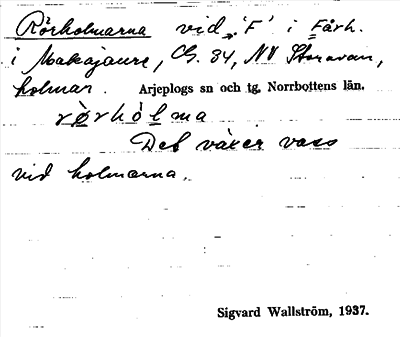 Rörholmarna vid 'F' i Fårh.
i Makajaure, Cb. 34, NV Storavan,
holmar. Arjeplogs sn och tg, Norrbottens län.
rö̀rhòlma
Det växer vass
vid holmarna.
Sigvard Wallström, 1937.